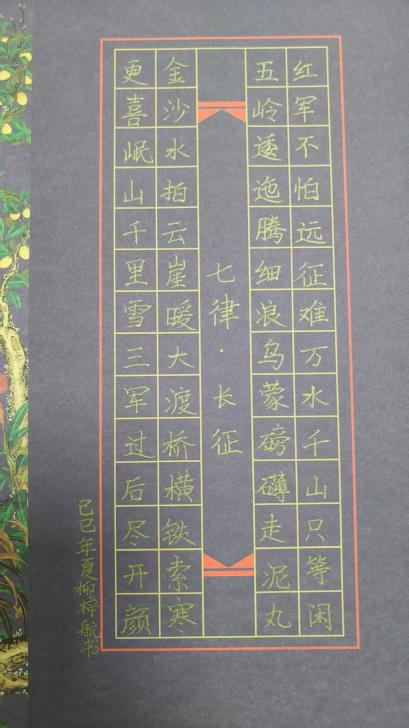 红军不怕远征难万水千山只等闲
五岭逶迤腾细浪乌蒙磅礴走泥丸
七律·长征
金沙水拍云崖暖大渡桥横铁索寒
更喜岷山千里雪三军过后尽开颜
己巳年夏柳梓航书